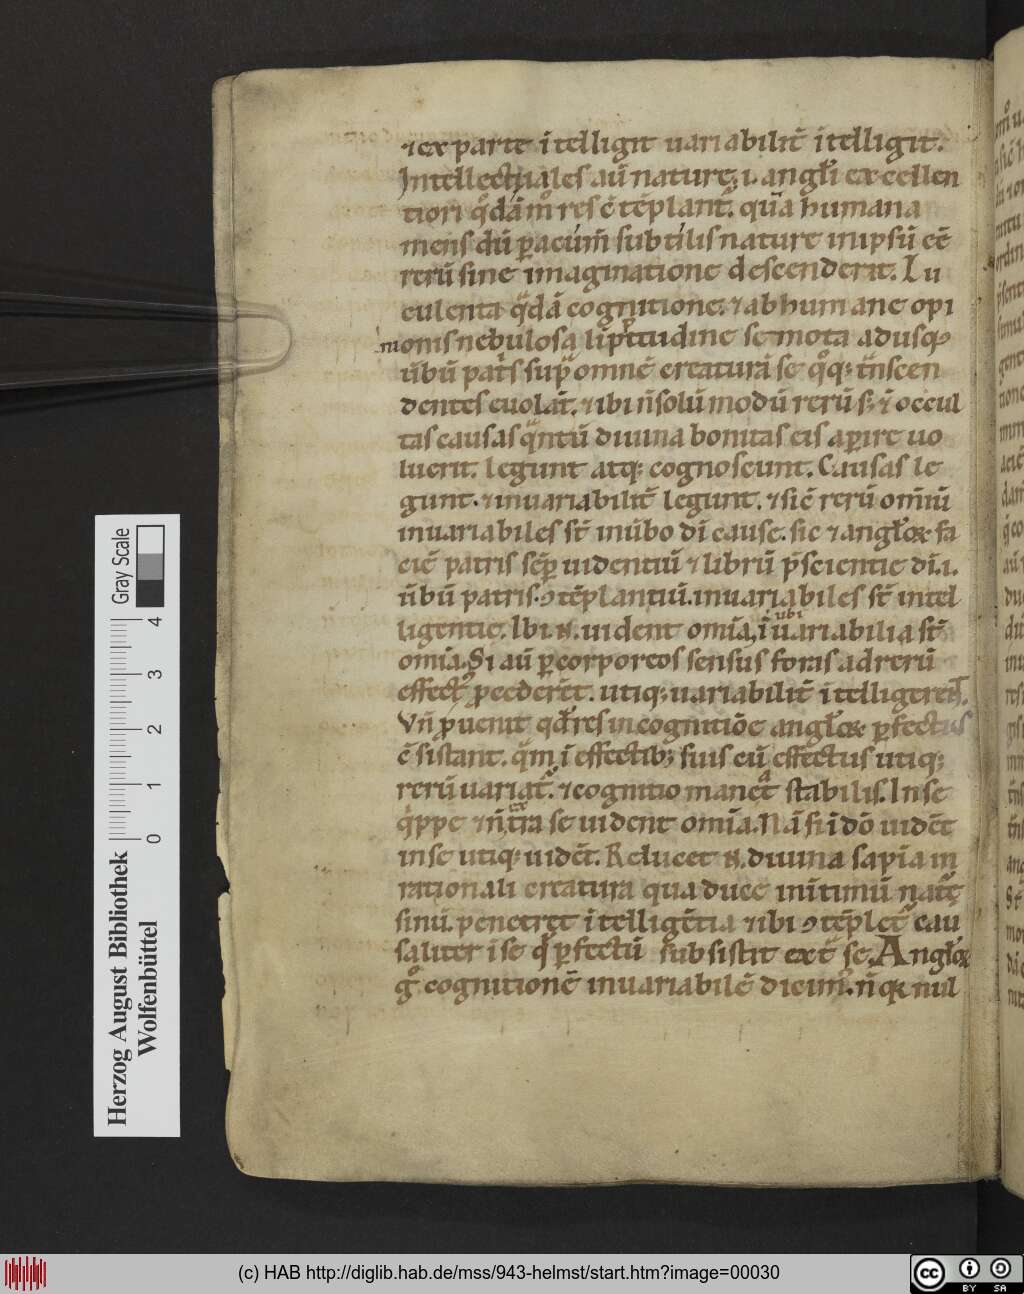 ⁊ ex parte ītelligit uariabilit̄ ītelligit.
Intellectuales aū nature; .i. angl̄i excellen
tiori q̄dā m̊ res c̄tēplant᷑. qūa humana
mens dū ꝑ acūm̄ subtilis nature in ipsū eē
rerū sine imaginatione descenderit. Lu
culenta q̄dā cognitione. ⁊ ab humane opi
nionis nebulosa lip̄titudine semota adusq;
ūbū pat̄s sup̄ omnē creaturā se q̊q; t̄nscen
dentes euolāt. ⁊ ibi n̄ solū modū rerū s; ⁊ occul
tas causas q̄ntū diuina bonitas eis aꝑire uo
luerit. legunt atq; cognoscunt. Causas le
gunt. ⁊ inuariabilit̄ legunt. ⁊ sic̄ rerū om̄iū
inuariabiles st̄ in ūbo dī cause. sic ⁊ angl̄oꝝ fa
ciē patris sēꝑ uidentiū ⁊ librū p̄scientie dī .i.
ūbū patris ꝯtēplantiū. inuariabiles st̄ intel
ligentie. Ibi .n. uident om̄ia, ī ubi uariabilia st̄
om̄ia. Si aū ꝑ corporeos sensus foras ad rerū
effect᷒ ꝓcederēt. utiq; uariabilit̄ ītelligerēt.
Vn̄ ꝓuenit qd̄ res in cognitiōe angl̄oꝝ ꝑfectus
c̄sistant. q̄m ī effectib; suis cū effectus utiq;
rerū uariat᷑. ⁊ cognitio maneat stabilis. In se
q̍ppe ⁊ n̄ ex̄tra se uident om̄ia. Nā si ī dō uidēt
in se utiq; uidēt. Relucet .n. diuina sapīa in
rationali creatura qua duce in intimū nat̄e
sinū. penetret ītelligētia ⁊ ibi ꝯtēplet᷑ cau
saliter ī se q̍ ꝑfectū subsistit ext̄ se. Angl̄oꝝ
g̊ cognitionē inuariabilē dicim᷒. n̄ q̍ nul
Herzog August Bibliothek
Wolfenbüttel
Gray Scale
0 1 2 3 4
(c) HAB http://diglib.hab.de/mss/943-helmst/start.htm?image=00030
cc BY SA